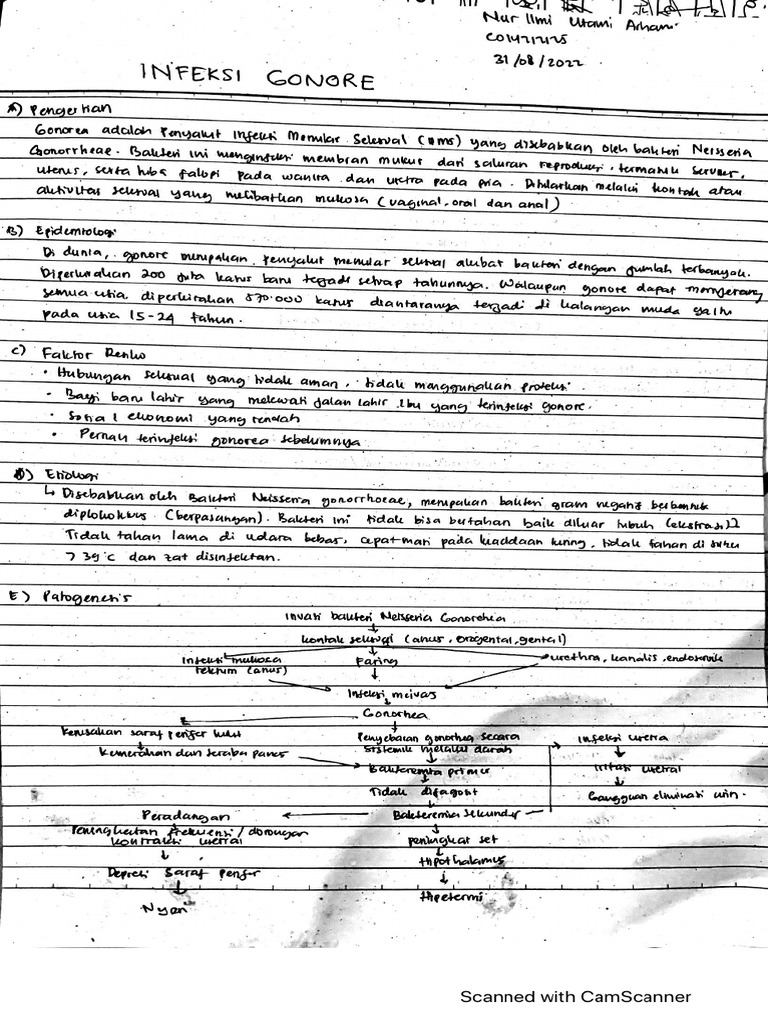 Nur Ilmi Utami Arhami
31/08/2022
INFEKSI GONORE
A) Pengertian
Gonorea adalah Penyakit Infeksi Menular Seksual (IMS) yang disebabkan oleh bakteri Neisseria
Gonorrheae. Bakteri ini menginfeksi membran mukus dari saluran reproduksi, termasuk serviks,
uterus, serta tuba falopi pada wanita dan uretra pada pria. Ditularkan melalui kontak atau
aktivitas seksual yang melibatkan mukosa (vaginal, oral dan anal)
B) Epidemiologi
Di dunia, gonore merupakan penyakit menular seksual akibat bakteri dengan jumlah terbanyak.
Diperkirakan 200 juta kasus baru terjadi setiap tahunnya. Walaupun gonore dapat menyerang
semua usia, diperkirakan 570.000 kasus diantaranya terjadi di kalangan muda yaitu
pada usia 15-24 tahun.
C) Faktor Resiko
• Hubungan seksual yang tidak aman, tidak menggunakan proteksi.
• Bayi baru lahir yang melewati jalan lahir Ibu yang terinfeksi gonore.
• Sosial ekonomi yang rendah
• Pernah terinfeksi gonorea sebelumnya
D) Etiologi
↳ Disebabkan oleh Bakteri Neisseria gonorrhoeae, merupakan bakteri gram negatif berbentuk
diplokokkus (berpasangan). Bakteri ini tidak bisa bertahan baik diluar tubuh
Tidak tahan lama di udara bebas, cepat mati pada keaddaan kering, tidak tahan di suhu
> 39°C dan zat disinfektan.
E) Patogenesis
Invasi bakteri Neisseria Gonorrhea
kontak seksual (anus, orogenital, genital)
Infeksi mukosa rektum (anus)
Faring
urethra, kanalis, endoserviks
Infeksi meluas
Gonorhea
Kerusakan saraf perifer kulit
Penyebaran gonorhea secara
Infeksi uretra
Kemerahan dan serabu panas
sistemik melalui darah
Bakteremia primer
Iritasi uretral
Tidak difagosit
Gangguan eliminasi urin.
Peradangan
Bakteremia sekunder
Peningkatan frekuensi/dorongan
kontraksi uretral
peningkat set
Hipothalamus
Depresi Saraf perifer
Hipetermi
Nyeri
Scanned with CamScanner